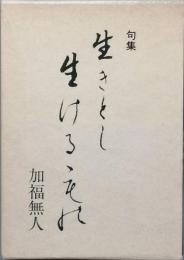 句集
生きとし
生けるもの
加福無人